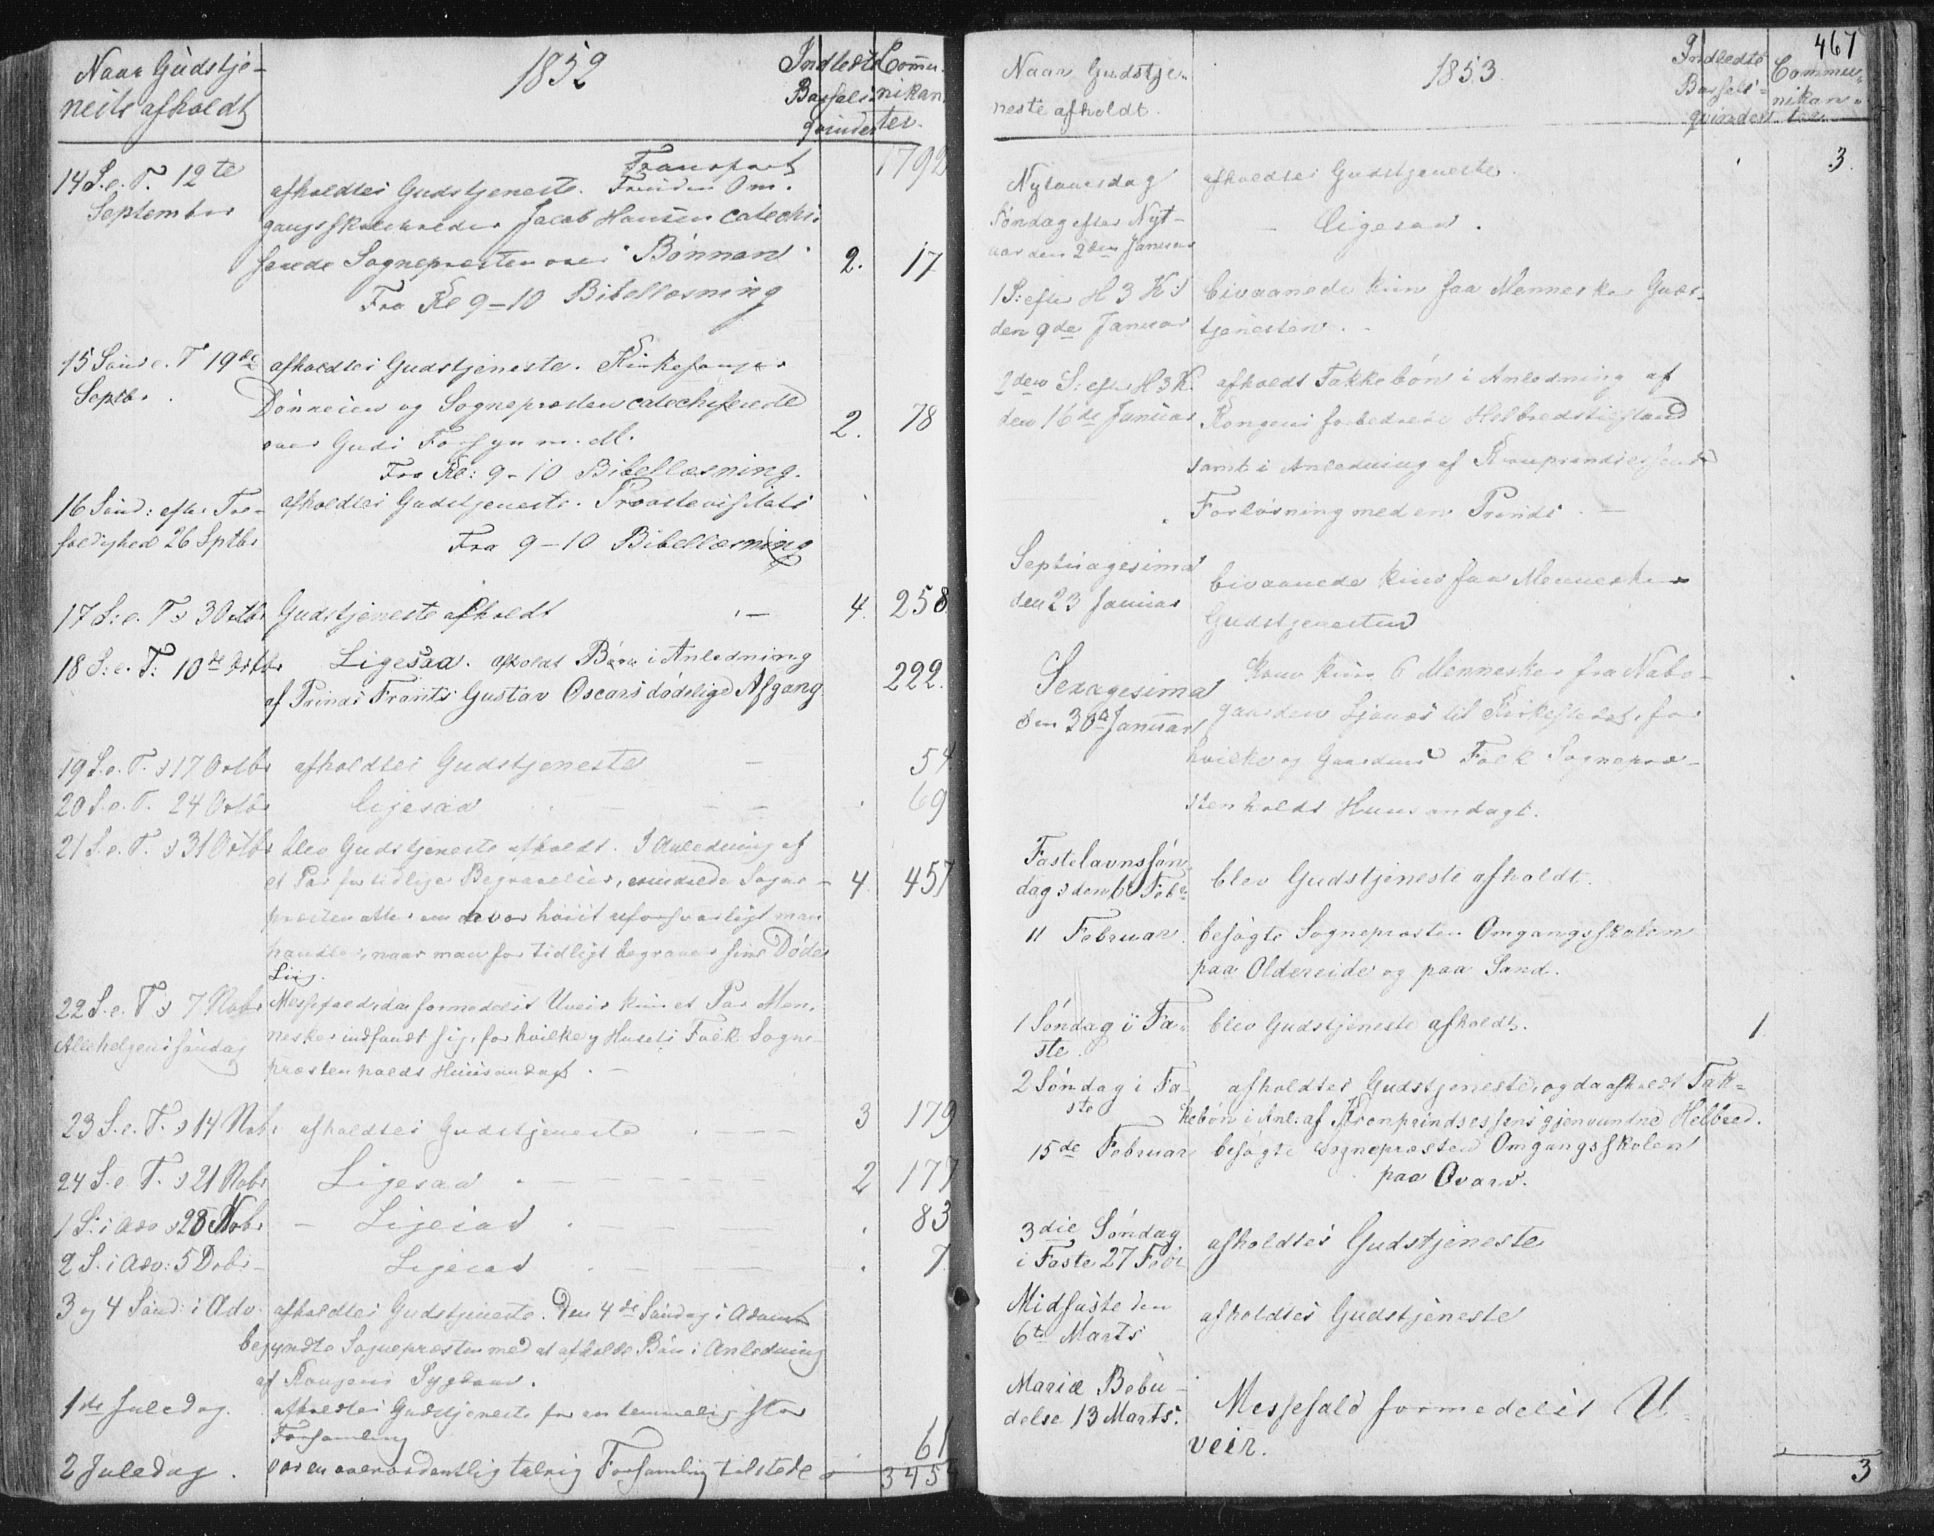 Naar Gudstje-
neste afholdt
1852
Indledte
Barsels
qvinder
Commu-
nikan
ter.
Transport 1792
14 S. e. T. 12te
September
afholdtes Gudstjeneste. Om-
gangsskoleholder Jacob Hansen catechi-
serede Sognepresten over "Bønnen" 2. 17
Fra Kl 9-10 Bibellæsning
15 Sønd e. T 19de
Septbr.
afholdtes Gudstjeneste. Kirkesanger
Dønneien og Sognepresten catechiserede
over Guds Forsyn m. M. 2. 78
Fra Kl: 9-10 Bibellæsning.
16 Sønd: efter Tre-
foldighed 26 Sptbr
afholdtes Gudstjeneste. Proostevisitats
Fra 9-10 Bibellæsning
17 S: e. T. 3 Octbr Gudstjeneste afholdt 4. 258
18 S: e. T: 10de Octbr Ligesaa. afholdt Bøn i Anledning
af Prinds Frants Gustav Oscars dødelige Afgang 222.
19 S. e. T. 17 Octbr afholdtes Gudstjeneste 54
20 S. e. T. 24 Octbr Ligesaa 69
21 S. e. T. 31 Octbr blev Gudstjeneste afholdt. I Anledning af
et Par for tidlige Begravelser, erindrede Sogne-
præsten atter om hvor høist uforsvarligt man 4. 457
handler, naar man for tidligt begraver sine Døde
Liig.
22 S. e. T. 7 Nobr
Allehelgens Søndag
Messefald, da formedelst Uveir kun et Par Men-
nesker indfandt sig, for hvilke og Husets Folk Sogne-
præsten holdt Huusandagt. -
23 S. e. T. 14 Nobr afholdtes Gudstjeneste 3 179
24 S. e. T. 21 Nobr Ligesaa 2 177
1 S: i Adv 28 Nobr Ligesaa 83
2 S: i Adv: 5 Debr Ligesaa 7
3 og 4 Sønd: i Adv. afholdtes Gudstjeneste. Den 4de Søndag i Advent
begyndte Sognepræsten med at afholde Bøn i Anledning
af Kongens Sygdom.
1ste Juledag. afholdtes Gudstjeneste for en temmelig stor
Forsamling 61
2 Juledag. var en overordentlig talrig Forsamling tilstede
3454
467
Naar Gudstje-
neste afholdt.
1853.
Indledte
Barsels-
qvinder
Commu-
nikan-
ter.
Nytaarsdag afholdtes Gudstjeneste. 3.
Søndag efter Nyt-
aar den 2den Januar
Ligesaa.
1 S: efter H 3 K:
den 9de Januar
bivaanede kun faa Mennesker Guds-
tjenesten.
2den S: efter H 3 K.
den 16de Januar
afholdt Takkebøn i Anledning af
Kongens forbedrede Helbredstilstand
samt i Anledning af Kronprindsessens
Forløsning med en Prinds. -
Septuagesima
den 23 Januar
bivaanede kun faa Mennesker
Gudstjenesten
Sexagesima
den 30te Januar
kom kun 6 Mennesker fra Nabo-
gaarden til Kirkestedet, for
hvilke og Gaardens Folk Sognepræ-
sten holdt Huusandagt.
Fastelavnssøn-
dag den 6 Febr
blev Gudstjeneste afholdt.
11 Februar. besøgte Sognepræsten Omgangsskolen
paa Oldereide og paa Sand.
1 Søndag i Fa-
ste.
blev Gudstjeneste afholdt. 1
2 Søndag i Fa-
ste
afholdtes Gudstjeneste, og da afholdt Tak-
kebøn i Anl: af Kronprindsessens gjenvundne Helbred.
15de Februar besøgte Sognepræsten Omgangsskolen
paa Qvarv.
3die Søndag
i Faste 27 Febr
afholdtes Gudstjeneste
Midfaste den
6te Marts
afholdtes Gudstjeneste
Mariæ Bebu-
delse 13 Marts.
Messefald formedelst U-
veir.
3